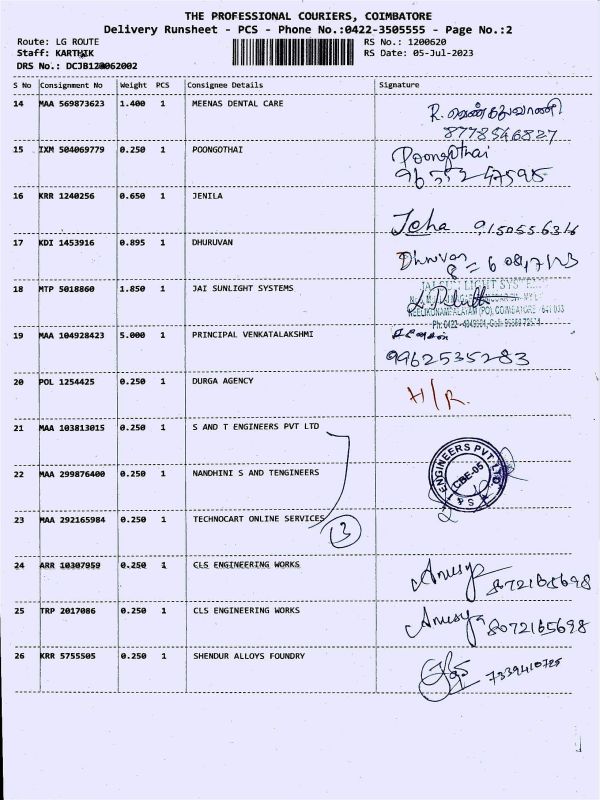 THE PROFESSIONAL COURIERS, COIMBATORE
Delivery Runsheet - PCS - Phone No.:0422-3505555 - Page No.:2
Route: LG ROUTE RS No.: 1200620
Staff: KARTHIK RS Date: 05-Jul-2023
DRS No.: DCJB120062002
S No Consignment No Weight PCS Consignee Details Signature
14 MAA 569873623 1.400 1 MEENAS DENTAL CARE R.
8778546827
15 IXM 504069779 0.250 1 POONGOTHAI Poongothai
16 KRR 1240256 0.650 1 JENILA
9150556316
17 KDI 1453916 0.895 1 DHURUVAN Dhruvan
18 MTP 5018860 1.850 1 JAI SUNLIGHT SYSTEMS
19 MAA 104928423 5.000 1 PRINCIPAL VENKATALAKSHMI
9962535283
20 POL 1254425 0.250 1 DURGA AGENCY H/R.
21 MAA 103813015 0.250 1 S AND T ENGINEERS PVT LTD
S & T ENGINEERS PVT. LTD. CBE-05
22 MAA 299876400 0.250 1 NANDHINI S AND TENGINEERS
23 MAA 292165984 0.250 1 TECHNOCART ONLINE SERVICES
3
24 ARR 10307959 0.250 1 CLS ENGINEERING WORKS Anusya 8072165698
25 TRP 2017086 0.250 1 CLS ENGINEERING WORKS Anusya 8072165698
26 KRR 5755505 0.250 1 SHENDUR ALLOYS FOUNDRY 7339410725